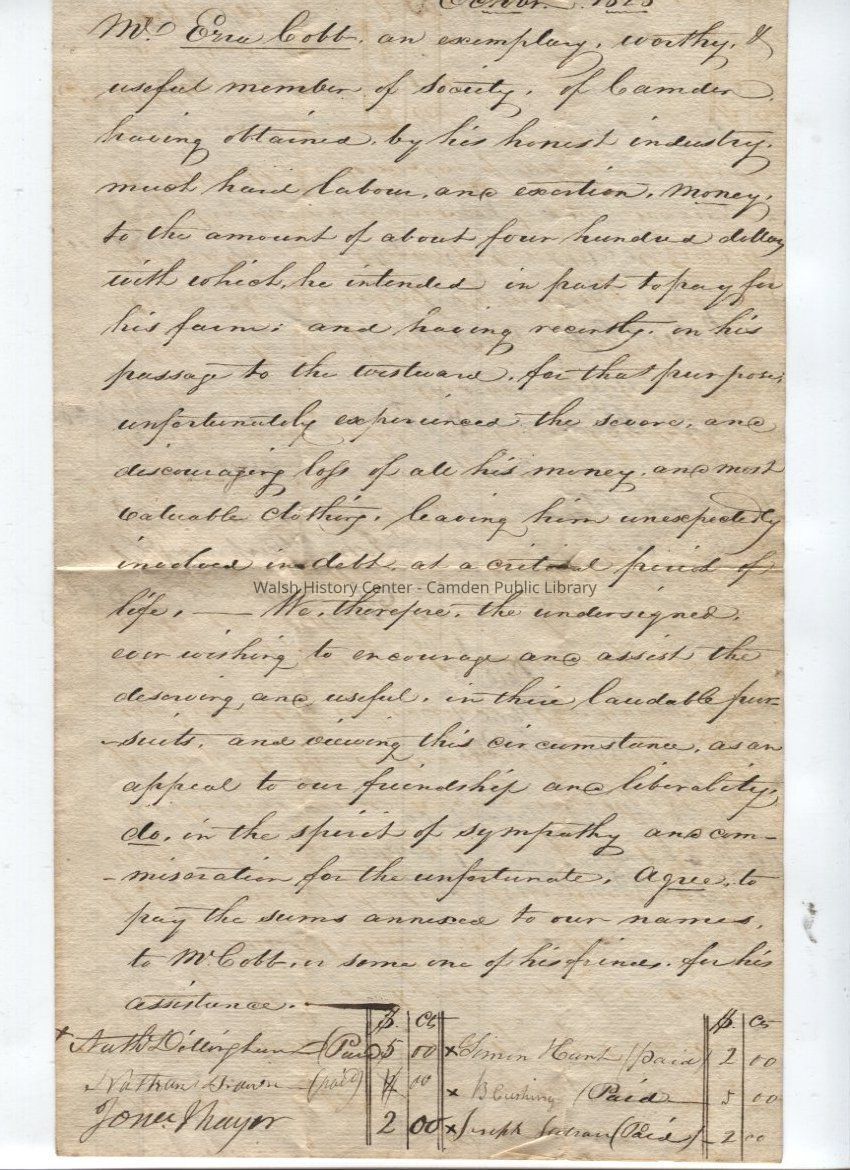 Mr. Ezra Cobb, an exemplary, worthy, &
useful member of Society, of Camden,
having obtained, by his honest industry,
much hard labour, and exertion, money,
to the amount of about four hundred dollars
with which, he intended in part to pay for
his farm; and having recently, on his
passage to the westward, for that purpose,
unfortunately experienced the severe, and
discouraging loss of all his money, and most
valuable clothing, leaving him unexpectedly
involved in debt, at a critical period of
Walsh History Center - Camden Public Library
life, — We, therefore, the undersigned,
ever wishing to encourage and assist the
deserving, and useful, in their laudable pur-
-suits, and viewing this circumstance, as an
appeal to our friendship and liberality,
do, in the spirit of sympathy and com-
-miseration for the unfortunate, Agree, to
pay the sums annexed to our names,
to Mr Cobb, or some one of his friends, for his
assistance. —
$ Cts $ Cts
x Nathl Dillingham (Paid) 5 00 x Simon Hunt (paid) 2 00
Nathan (paid) 4 00 x B Cushing (Paid) 5 00
Jones Thayer 2 00 x Joseph (Paid) 2 00